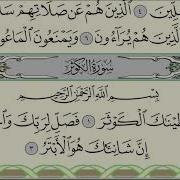 ـلين ٤ الذين هم عن صلاتهم سا
الذين هم يراءون ٦ ويمنعون الماعو
سورة الكوثر
بسم الله الرحمن الرحيم
ـطيناك الكوثر ١ فصل لربك وا
إن شانئك هو الأبتر ٣